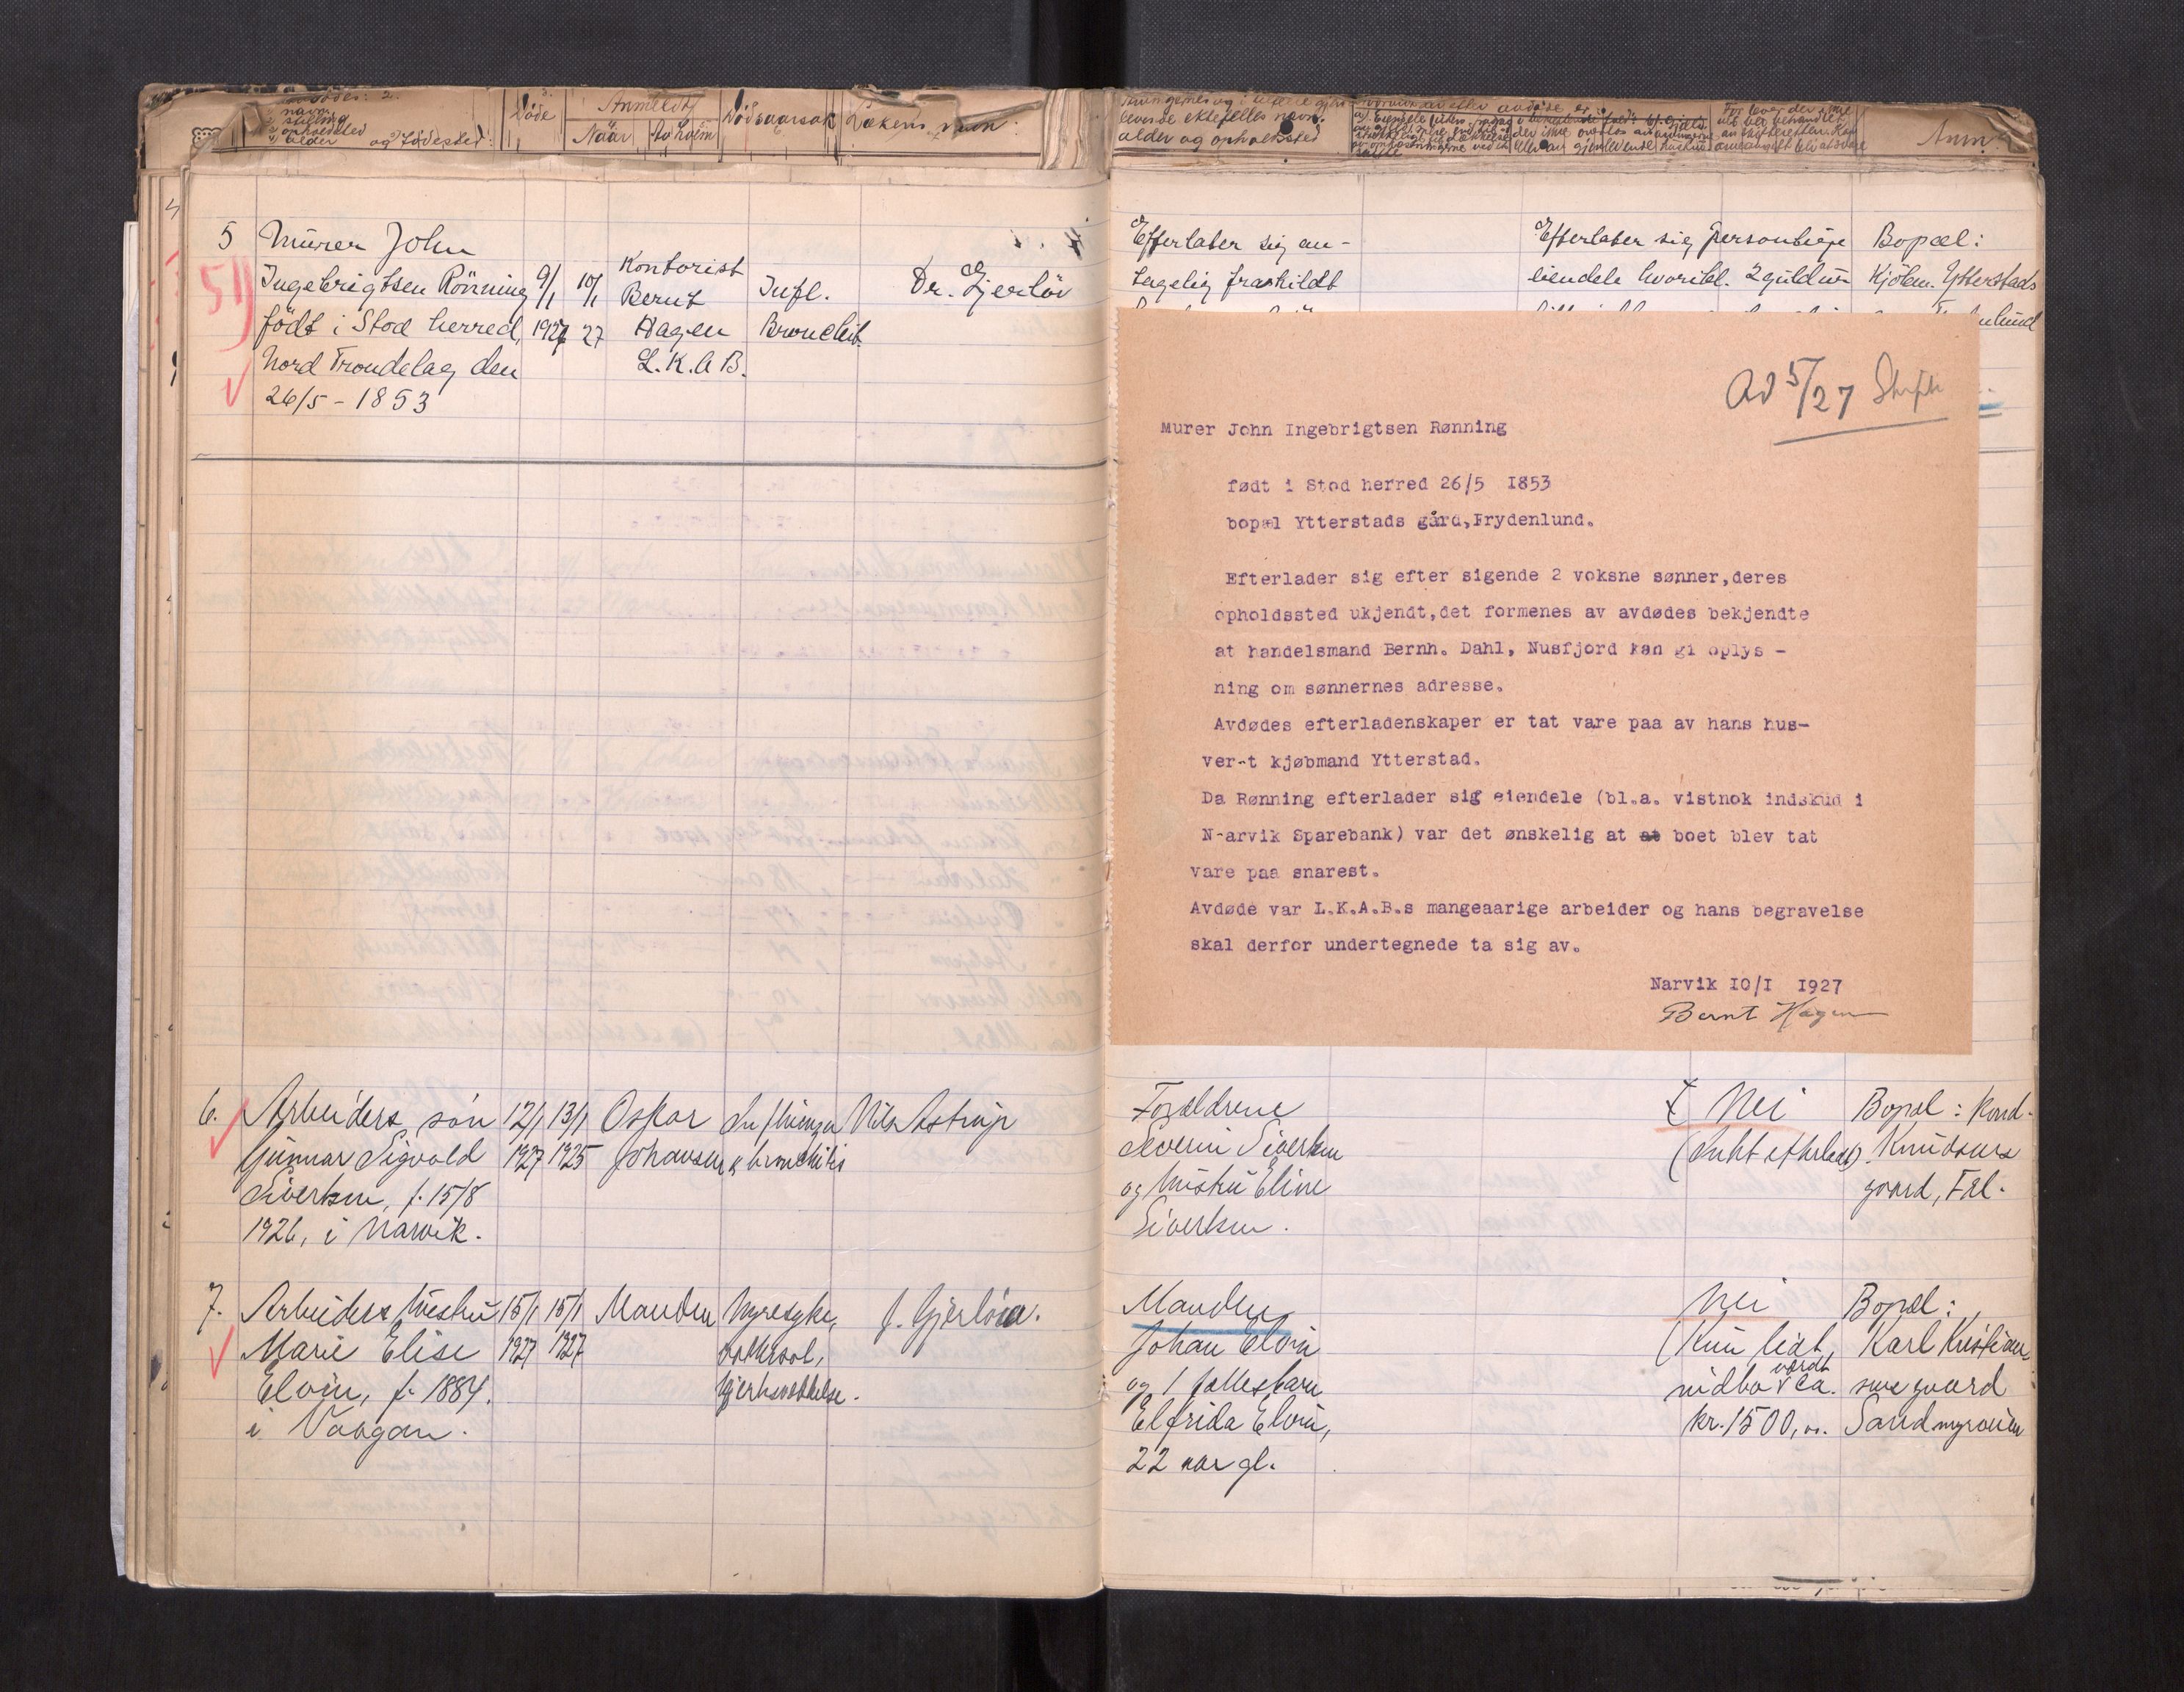 navn
stilling
opholdsted
alder og Fødested:
Døde
Anmeldt
Naar av hvem
Dødsaarsak
Lækens navn:
levende ektefelles navn.
alder og opholdssted
Anm.
5 Murer John
Ingebrigtsen Rönning
født i Stod herred,
Nord Trondelag den
26/5 - 1853
9/1
1927
10/1
27
Kontorist
Bernt
Hagen
L.K.A.B.
Infl.
Bronchit.
Dr. Gjerlöv
Efterlater sig an-
tagelig fraskildt
Efterlater sig personlige
eiendele hvoribl. 2 guldur
Bopæl:
Hjöbm. Ytterstads
Ad 5/27 Skifte
Murer John Ingebrigtsen Rønning
født i Stod herred 26/5 I853
bopæl Ytterstads gård,Frydenlund.
Efterlader sig efter sigende 2 voksne sønner,deres
opholdssted ukjendt,det formenes av avdødes bekjendte
at handelsmand Bernh. Dahl, Nusfjord kan gi oplys -
ning om sønnernes adresse.
Avdødes efterladenskaper er tat vare paa av hans hus-
ver-t kjøbmand Ytterstad.
Da Rønning efterlader sig eiendele (bl.a. vistnok indskud i
N-arvik Sparebank) var det ønskelig at at boet blev tat
vare paa snarest.
Avdøde var L.K.A.B.s mangeaarige arbeider og hans begravelse
skal derfor undertegnede ta sig av.
Narvik IO/I 1927
Bernt Hagen
6. Arbeiders søn
Gunnar Sigvald
Sivertsen, f. 15/8
1926, i Narvik.
12/1
1927
13/1
1925
Oskar
Johansen
Influensa
& bronchitis
Nils Astrup
Forældrene
Severin Sivertsen
og hustru Eline
Sivertsen.
Nei
(Intet efterladt)
Bopæl: Kond.
Knudsens
gaard, Fdl.
7. Arbeiders hustru
Marie Elise
Elvin, f. 1884.
i Vaagan.
15/1
1927
15/1
1927
Manden
Nyresyke,
vattersot,
hjertesvækkelse.
J. Gjerløw.
Manden
Johan Elvin
og 1 fællesbarn
Elfrida Elvin,
22 aar gl.
Nei
(Kun lidt
indbo værdt ca.
kr. 1500,00.
Bopæl:
Karl Kristian-
sens gaard
Sandmyrveien